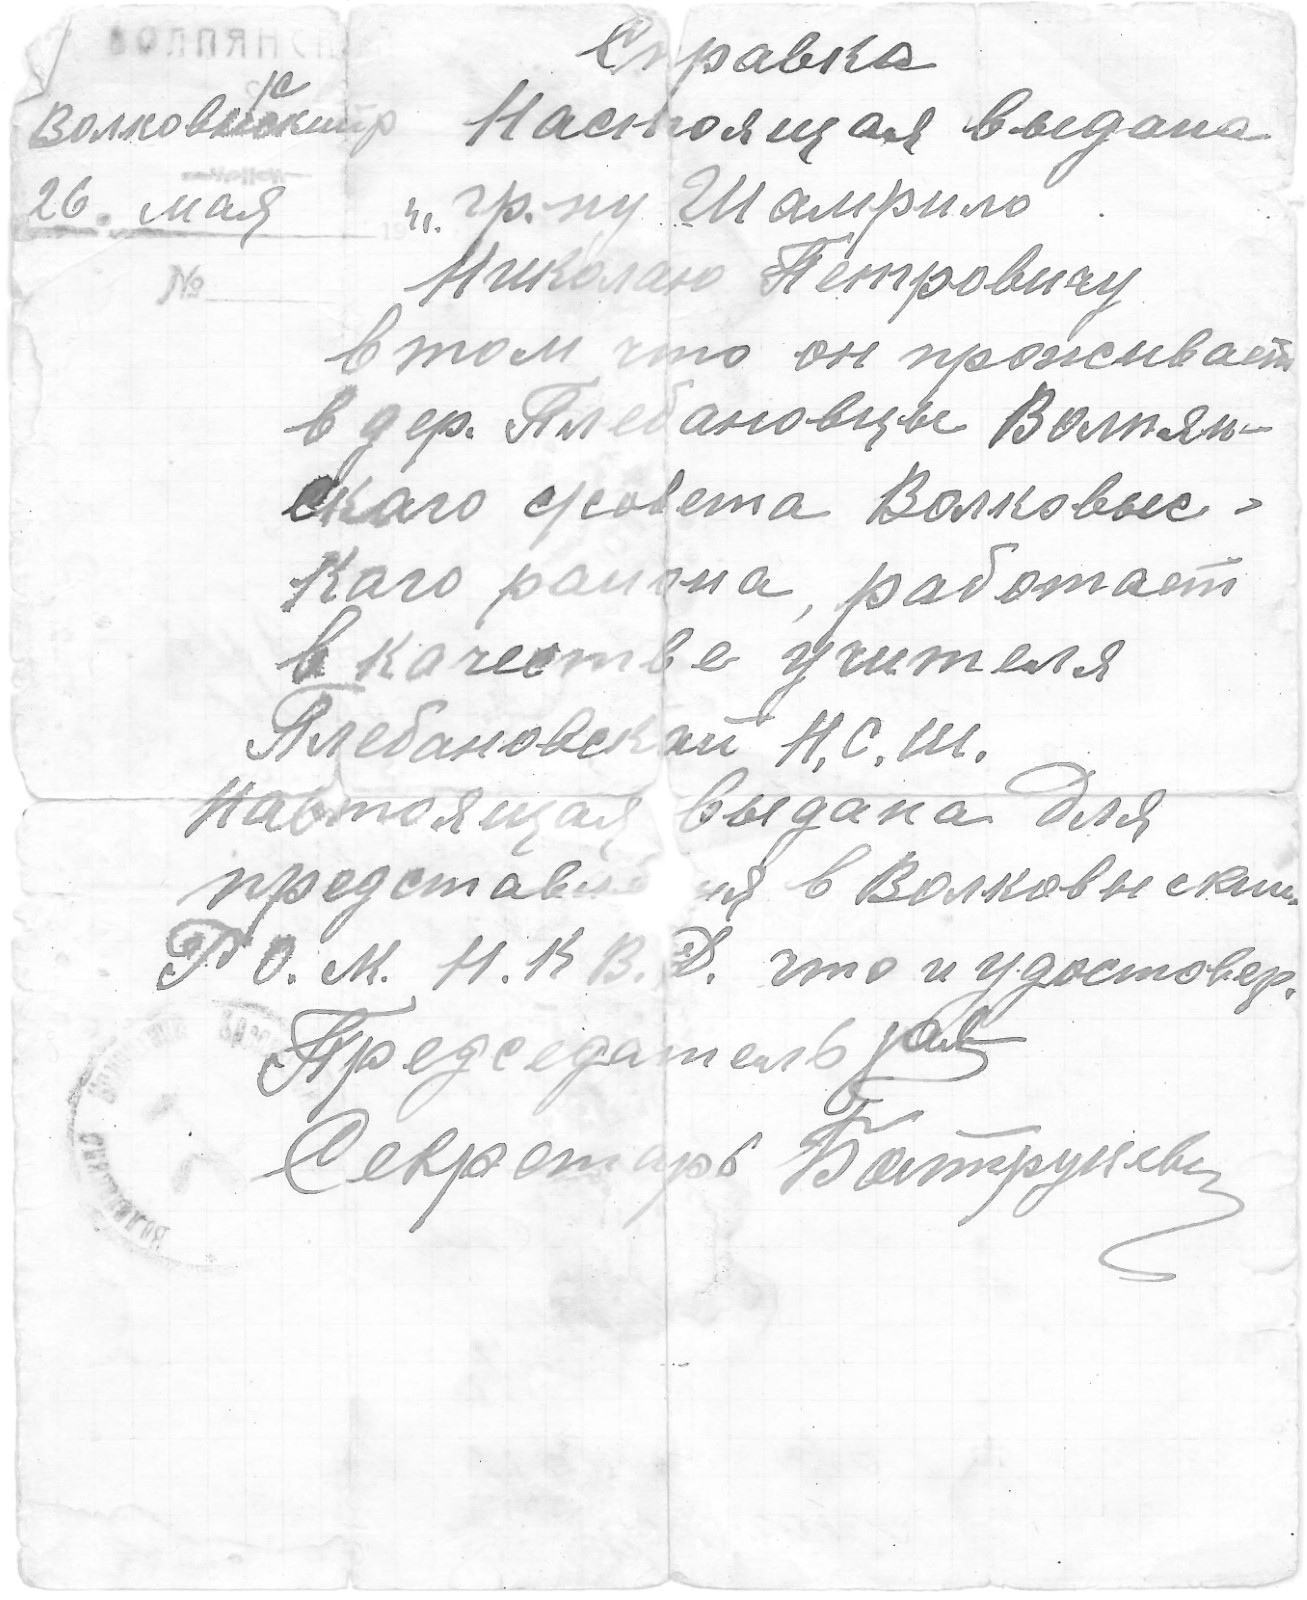 ВОЛПЯНС
Справка
Волковыский р
Настоящая выдана
26. мая 19 41. гр-ну Шамрило
№
Николаю Петровичу
в том что он проживает
в дер. Плебановцы Волпян-
скаго с/совета Волковыс-
каго района, работает
в качестве учителя
Плебановской Н.С.Ш.
Настоящая выдана для
представления в Волковыский
Р О. М. Н. К В. Д. что и удостовер.
Председатель
Секретарь